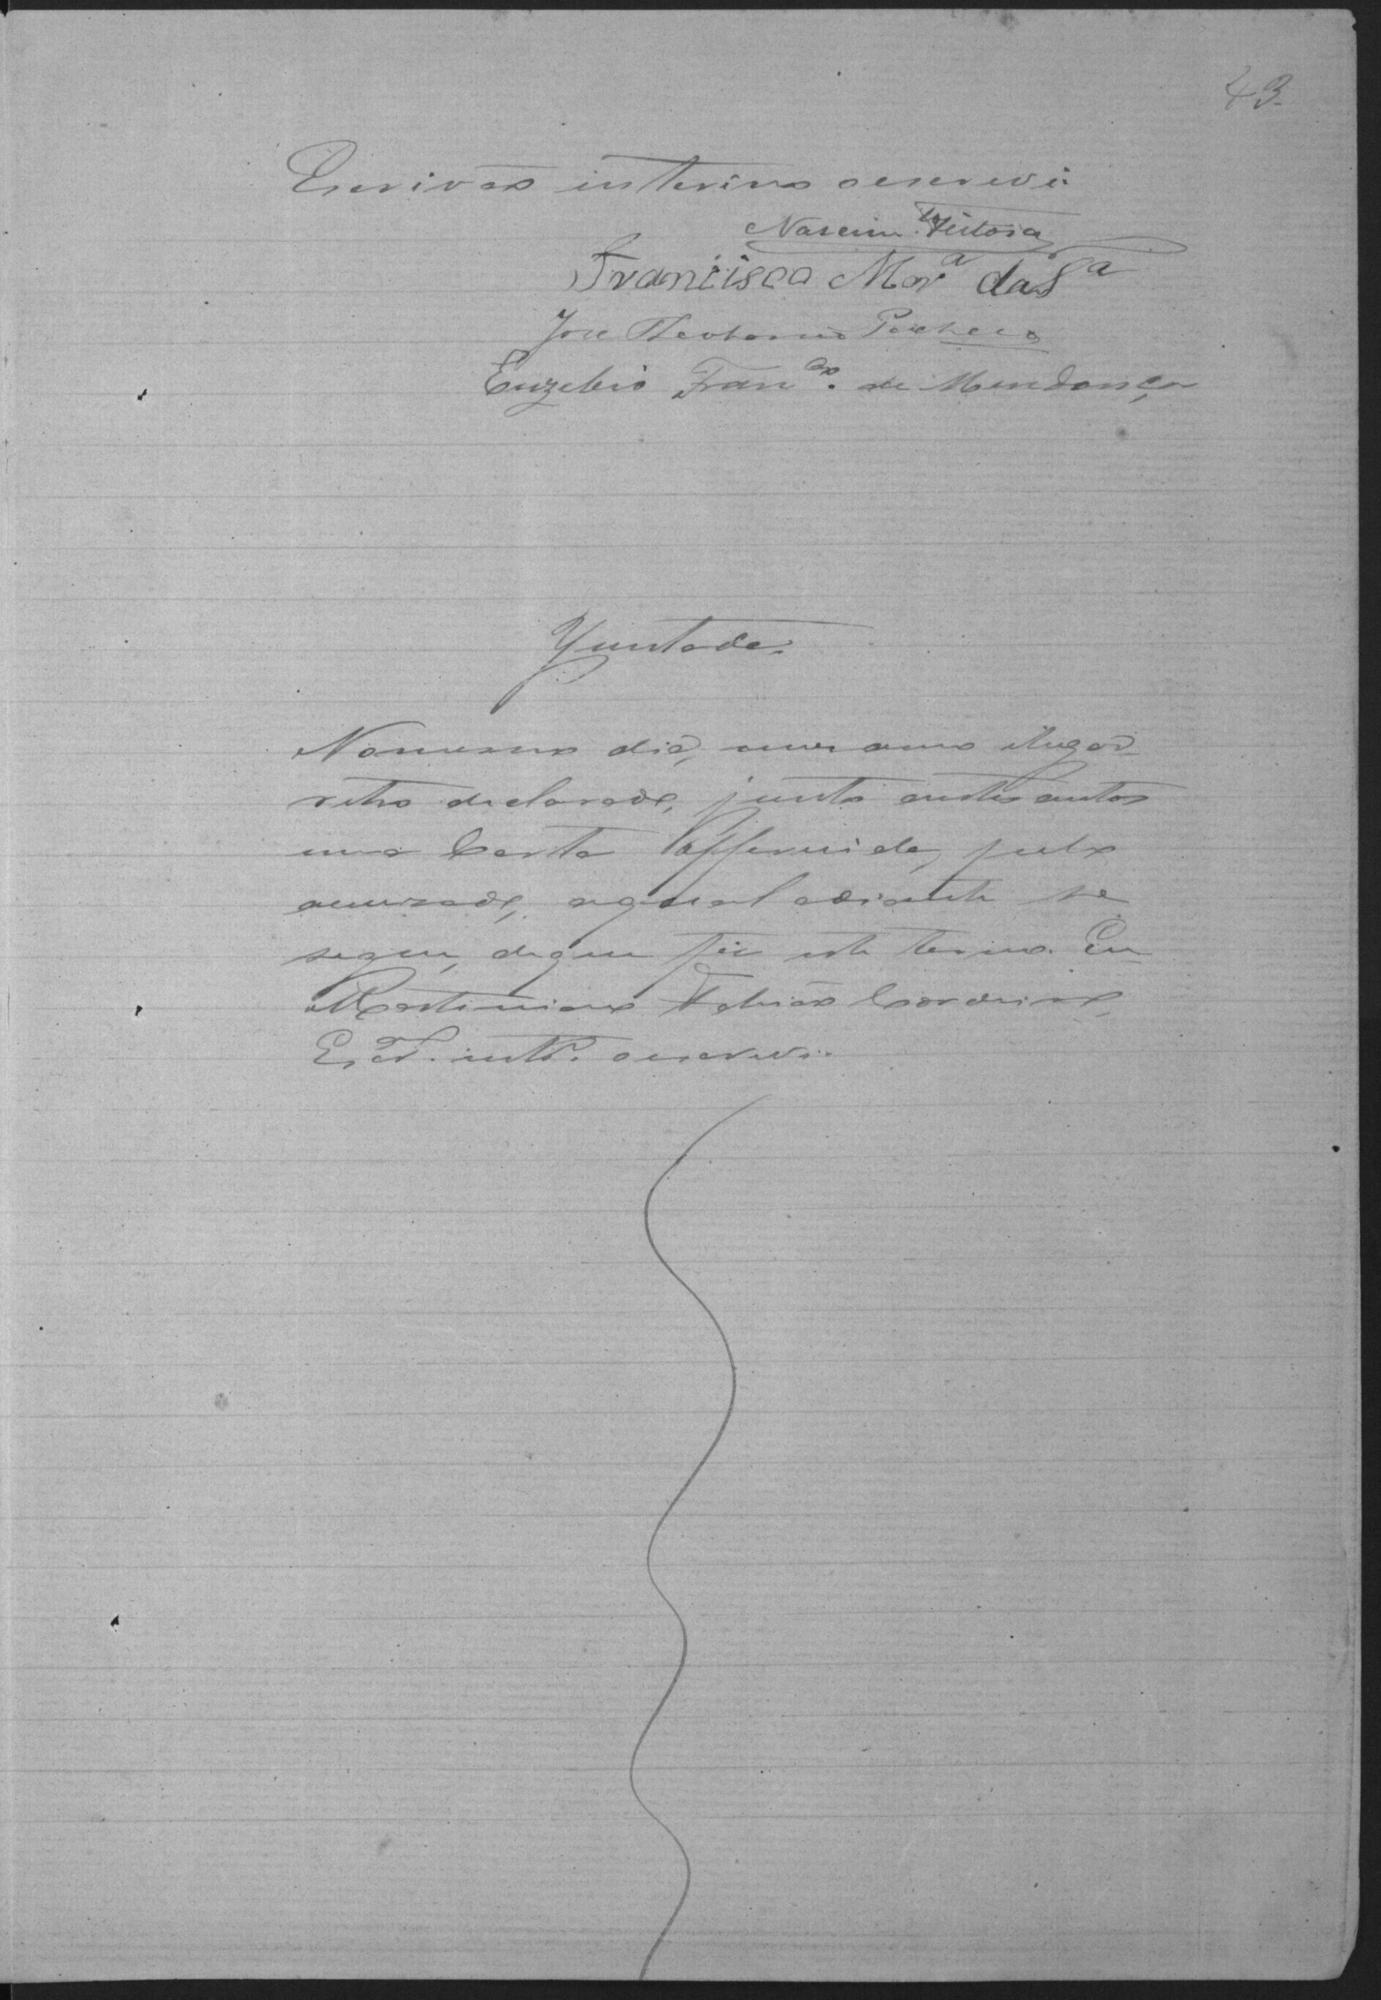 43.
Escrivão interino o escrevi.
Nascimto. Feitosa
Francisco Mora da Sa
Jose Theotonio Pacheco
Euzebio Franco. de Mendonça
Juntada.
No mesmo dia, mez anno e lugar
retro declarado, junto a estes autos
uma Carta offerecida, pelo
accusado, a qual adiante se
segue, do que fiz este termo. Eu
Martiniano Cordeiro,
Escr. intr. o escrevi.